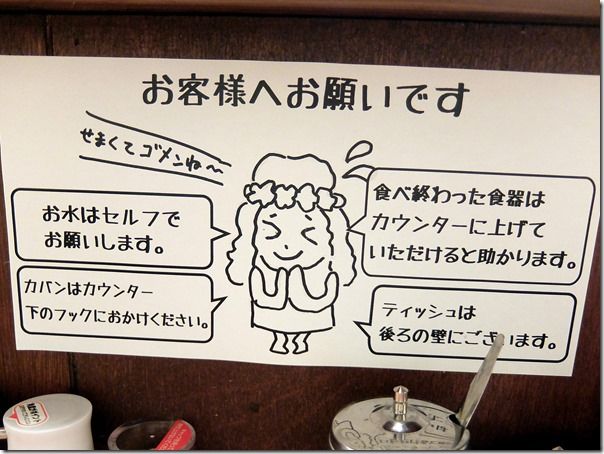 お客様へお願いです
せまくてゴメンね〜
お水はセルフで
お願いします。
食べ終わった食器は
カウンターに上げて
いただけると助かります。
カバンはカウンター
下のフックにおかけください。
ティッシュは
後ろの壁にございます。